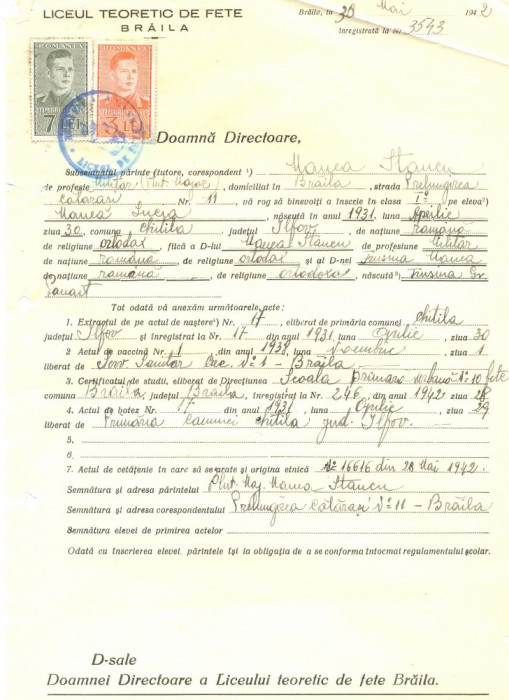 LICEUL TEORETIC DE FETE
BRĂILA
Brăila, in 30 Mai 1942
Inregistrată la Nr. 3543
ROMÂNIA ROMÂNIA
7 LEI
Doamnă Directoare,
Subsemnatul părinte (tutore, corespondent ¹) Manea Stancu
de profesie militar (Plut. Major), domiciliat în Brăila, strada Prelungirea
Călărași Nr. 11, vă rog să binevoiți a inscrie în clasa I-a pe eleva²)
Manea Lucia, născută în anul 1931. luna Aprilie
ziua 30, comuna Chitila județul Ilfov, de națiune română
de religiune ortodox, fiică a D-lui Manea Stancu de profesiune militar
de națiune română, de religiune ortodox și al D-nei Manea
de națiune română, de religiune ortodoxă, născută³)
Tot odată vă anexăm următoarele acte:
1. Extrasul de pe actul de naștere⁴) Nr. 17, eliberat de primăria comunei Chitila
județul Ilfov și inregistrat la Nr. 17 din anul 1931 luna Aprilie, ziua 30
2 Actul de vaccină Nr. 1 din anul 1938 luna Noembrie, ziua 1
liberat de Serv. Sanitar Brăila
3. Certificatul de studii, eliberat de Direcțiunea Școala primară urbană No 10 fete
comuna Brăila județul Brăila, inregistrat la Nr. 246 din anul 1942 ziua 28
4. Actul de botez Nr. 17 din anul 1931, luna Aprilie, ziua 39
liberat de Primăria comunei Chitila jud. Ilfov
5.
6.
7. Actul de cetățenie în care să se arate și origina etnică No 16616 din 28 Mai 1942.
Semnătura și adresa părintelui Plut. Maj. Manea Stancu
Semnătura și adresa corespondentului Prelungirea Călărași No 11 - Brăila
Semnătura elevei de primirea actelor
Odată cu inscrierea elevei, părintele își la obligația de a se conforma intocmai regulamentului școlar.
D-sale
Doamnei Directoare a Liceului teoretic de fete Brăila.